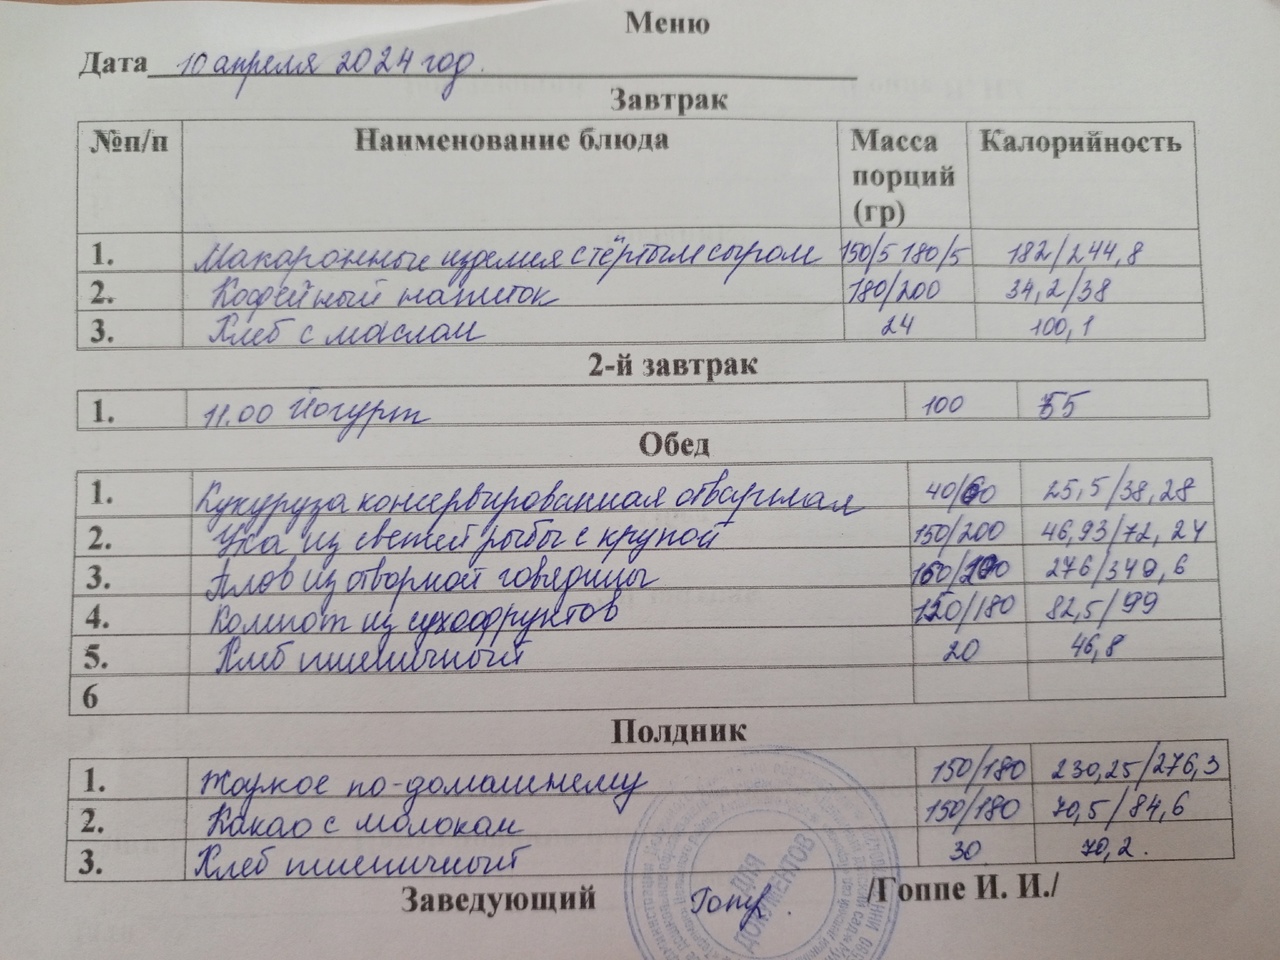 Меню
Дата 10 апреля 2024 год.
Завтрак
№п/п Наименование блюда Масса порций (гр) Калорийность
1. Макаронные изделия с тёртым сыром 150/5 180/5 182/244,8
2. Кофейный напиток 180/200 34,2/38
3. Хлеб с маслом 24 100,1
2-й завтрак
1. 11.00 Йогурт 100 55
Обед
1. Кукуруза консервированная отварная 40/60 25,5/38,28
2. Уха из свежей рыбы с крупой 150/200 46,93/72,24
3. Плов из отворной говядины 276/349,6
4. Компот из сухофруктов 150/180 82,5/99
5. Хлеб пшеничный 20 46,8
6
Полдник
1. Жаркое по-домашнему 150/180 230,25/276,3
2. Какао с молоком 150/180 70,5/84,6
3. Хлеб пшеничный 30 70,2.
Заведующий /Гоппе И. И./
ДЛЯ ДОКУМЕНТОВ